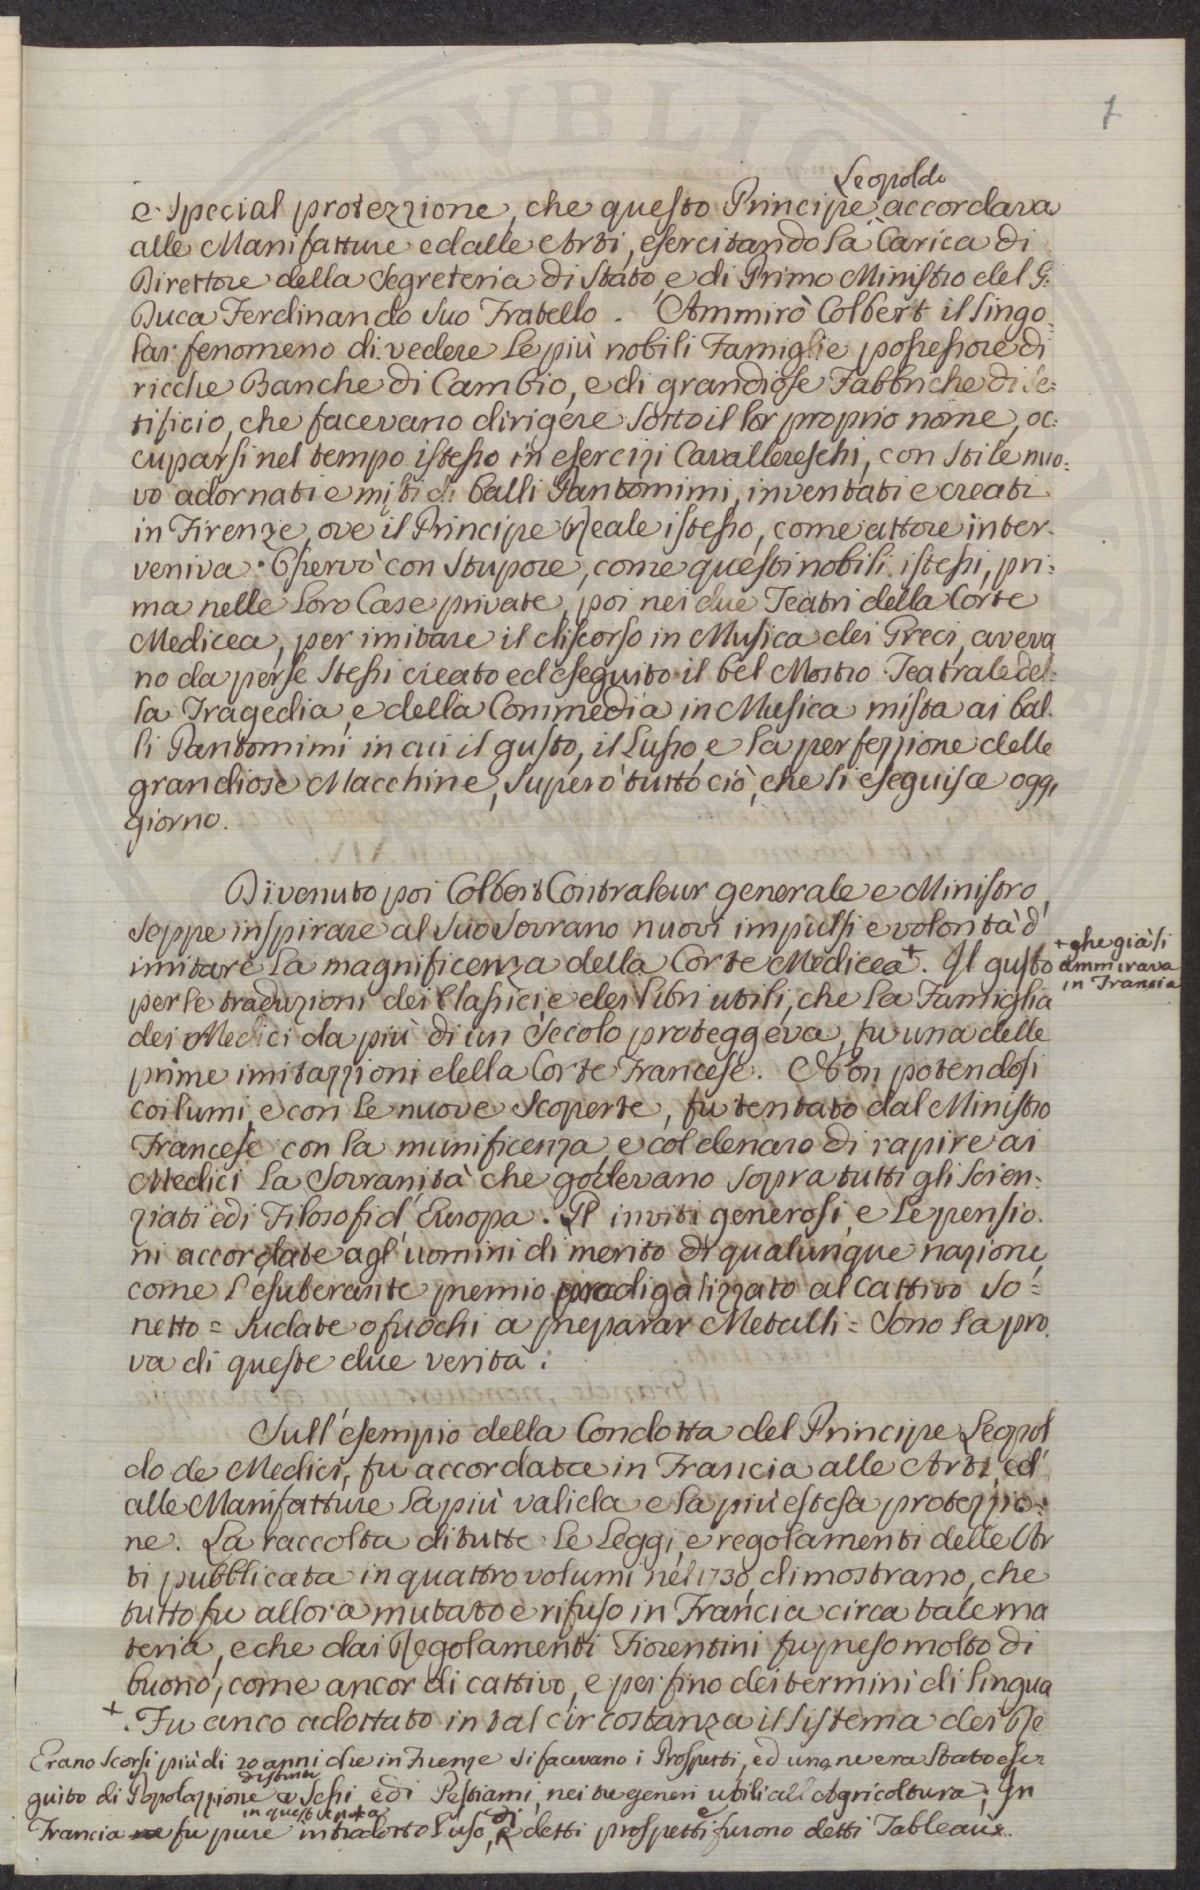 1
Leopoldo
e special protezzione, che questo Principe accordava
alle Manifatture ed alle Arti, esercitando la Carica di
Direttore della Segreteria di Stato, e di Primo Ministro del G:
Duca Ferdinando suo Fratello. Ammirò Colbert il singo=
lar fenomeno di vedere le più nobili Famiglie possessore di
ricche Banche di Cambio, e di grandiose Fabbriche di Se=
tificio, che facevano dirigere sotto il lor proprio nome, oc=
cuparsi nel tempo istesso in esercizi Cavallereschi, con stile nuo=
vo adornati e misti di balli Pantomimi, inventati e creati
in Firenze, ove il Principe Reale istesso, come attore inter=
veniva. Osservò con stupore, come questi nobili istessi, pri=
ma nelle loro Case private, poi nei due Teatri della Corte
Medicea, per imitare il discorso in Musica dei Greci, aveva
no da per se stessi creato ed eseguito il bel Mostro Teatrale del=
la Tragedia, e della Commedia in Musica mista ai bal=
li Pantomimi, in cui il gusto, il lusso, e la perfezzione delle
grandiose Macchine, superò tutto ciò, che si eseguisce oggi
giorno.
Divenuto poi Colbert Contraleur generale e Ministro,
seppe inspirare al suo Sovrano nuovi impulsi e volontà d'
imitare la magnificenza della Corte Medicea+. Il gusto
+ che già si
ammirava
in Francia
per le traduzioni dei Classici, e dei libri utili, che la Famiglia
dei Medici da più di un Secolo proteggeva, fu una delle
prime imitazzioni della Corte Francese. Non potendosi
coi lumi, e con le nuove scoperte, fu tentato dal Ministro
Francese con la munificenza, e col denaro di rapire ai
Medici la Sovranità che godevano sopra tutti gli Scien=
ziati e di Filosofi d'Europa. Gl'inviti generosi, e le pensio=
ni accordate agl'uomini di merito di qualunque nazione,
come l'esuberante premio prodigalizzato al cattivo So=
netto = Sudate o fuochi a preparar Metalli = sono la pro
va di queste due verità:
Sull'esempio della Condotta del Principe Leopol
do de Medici, fu accordata in Francia alle Arti, ed
alle Manifatture la più valida e la più estesa protezzio=
ne. La raccolta di tutte le Leggi, e regolamenti delle Ar
ti pubblicata in quattro volumi nel 1730, dimostrano, che
tutto fu allora mutato e rifuso in Francia circa tale ma
teria, e che dai Regolamenti Fiorentini fu preso molto di
buono, come ancor di cattivo, e per fino dei termini di lingua
+. Fu anco adottato in tal circostanza il sistema dei Re
Erano scorsi più di 20 anni che in Firenze si facevano i Prospetti, ed uno ne era stato ese=
distinti
guito di Popolazzione a Sessi, e di Bestiami, nei tre generi utili all'Agricoltura; In
in quest'epoca
Francia fu pure introdotto l'uso, di detti prospetti e furono detti Tableaux.